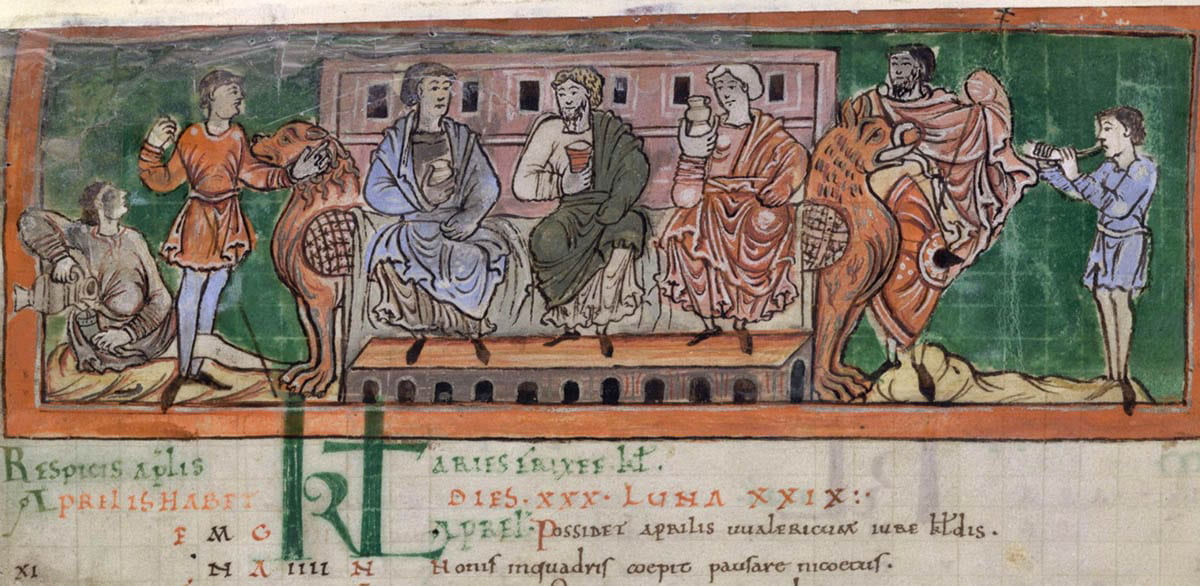 RESPICIS APLIS ARIES FRIXEE KL.
APRELIS HABET KL DIES. XXX. LUNA XXIX:.
F M G APREL. POSSIDET APRILIS UUALERICUM IURE KLDIS.
XI N A IIII N Nonis inquadris coepit pausare nicoetus.